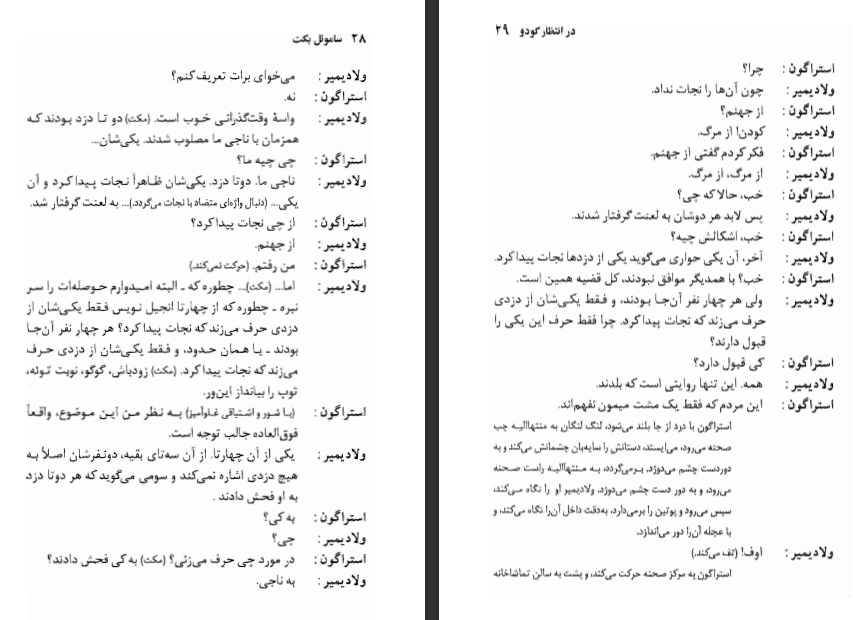 ۲۸ ساموئل بکت
ولادیمیر : می‌خوای برات تعریف کنم؟
استراگون : نه.
ولادیمیر : واسهٔ وقت‌گذرانی خوب است. (مکث) دو تا دزد بودند که
همزمان با ناجی ما مصلوب شدند. یکی‌شان...
استراگون : چی چیه ما؟
ولادیمیر : ناجی ما. دوتا دزد. یکی‌شان ظاهراً نجات پیدا کرد و آن
یکی... (دنبال واژه‌ای متضاد با نجات می‌گردد.)... به لعنت گرفتار شد.
استراگون : از چی نجات پیدا کرد؟
ولادیمیر : از جهنم.
استراگون : من رفتم. (حرکت نمی‌کند.)
ولادیمیر : اما... (مکث)... چطوره که ـ البته امیدوارم حوصله‌ات را سر
نبره ـ چطوره که از چهارتا انجیل نویس فقط یکی‌شان از
دزدی حرف می‌زند که نجات پیدا کرد؟ هر چهار نفر آن‌جا
بودند ـ یا همان حدود، و فقط یکی‌شان از دزدی حرف
می‌زند که نجات پیدا کرد. (مکث) زودباش، گوگو، نوبت توئه،
توپ را بیانداز این‌ور.
استراگون : (با شور و اشتیاقی غلوآمیز) به نظر من این موضوع، واقعاً
فوق‌العاده جالب توجه است.
ولادیمیر : یکی از آن چهارتا. از آن سه‌تای بقیه، دونفرشان اصلاً به
هیچ دزدی اشاره نمی‌کند و سومی می‌گوید که هر دوتا دزد
به او فحش دادند .
استراگون : به کی؟
ولادیمیر : چی؟
استراگون : در مورد چی حرف می‌زنی؟ (مکث) به کی فحش دادند؟
ولادیمیر : به ناجی.
در انتظار گودو ۲۹
استراگون : چرا؟
ولادیمیر : چون آن‌ها را نجات نداد.
استراگون : از جهنم؟
ولادیمیر : کودن! از مرگ.
استراگون : فکر کردم گفتی از جهنم.
ولادیمیر : از مرگ، از مرگ.
استراگون : خب، حالا که چی؟
ولادیمیر : پس لابد هر دوشان به لعنت گرفتار شدند.
استراگون : خب، اشکالش چیه؟
ولادیمیر : آخر، آن یکی حواری می‌گوید یکی از دزدها نجات پیدا کرد.
استراگون : خب؟ با همدیگر موافق نبودند، کل قضیه همین است.
ولادیمیر : ولی هر چهار نفر آن‌جا بودند، و فقط یکی‌شان از دزدی
حرف می‌زند که نجات پیدا کرد. چرا فقط حرف این یکی را
قبول دارند؟
استراگون : کی قبول دارد؟
ولادیمیر : همه. این تنها روایتی است که بلدند.
استراگون : این مردم که فقط یک مشت میمون نفهم‌اند.
استراگون با درد از جا بلند می‌شود، لنگ لنگان به منتهاالیه چپ
صحنه می‌رود، می‌ایستد، دستانش را سایه‌بان چشمانش می‌کند و به
دوردست چشم می‌دوزد. برمی‌گردد، به منتهاالیه راست صحنه
می‌رود، و به دور دست چشم می‌دوزد. ولادیمیر او را نگاه می‌کند،
سپس می‌رود و پوتین را برمی‌دارد، به‌دقت داخل آن‌را نگاه می‌کند، و
با عجله آن‌را دور می‌اندازد.
ولادیمیر : اوف! (تف می‌کند.)
استراگون به مرکز صحنه حرکت می‌کند، و پشت به سالن تماشاخانه